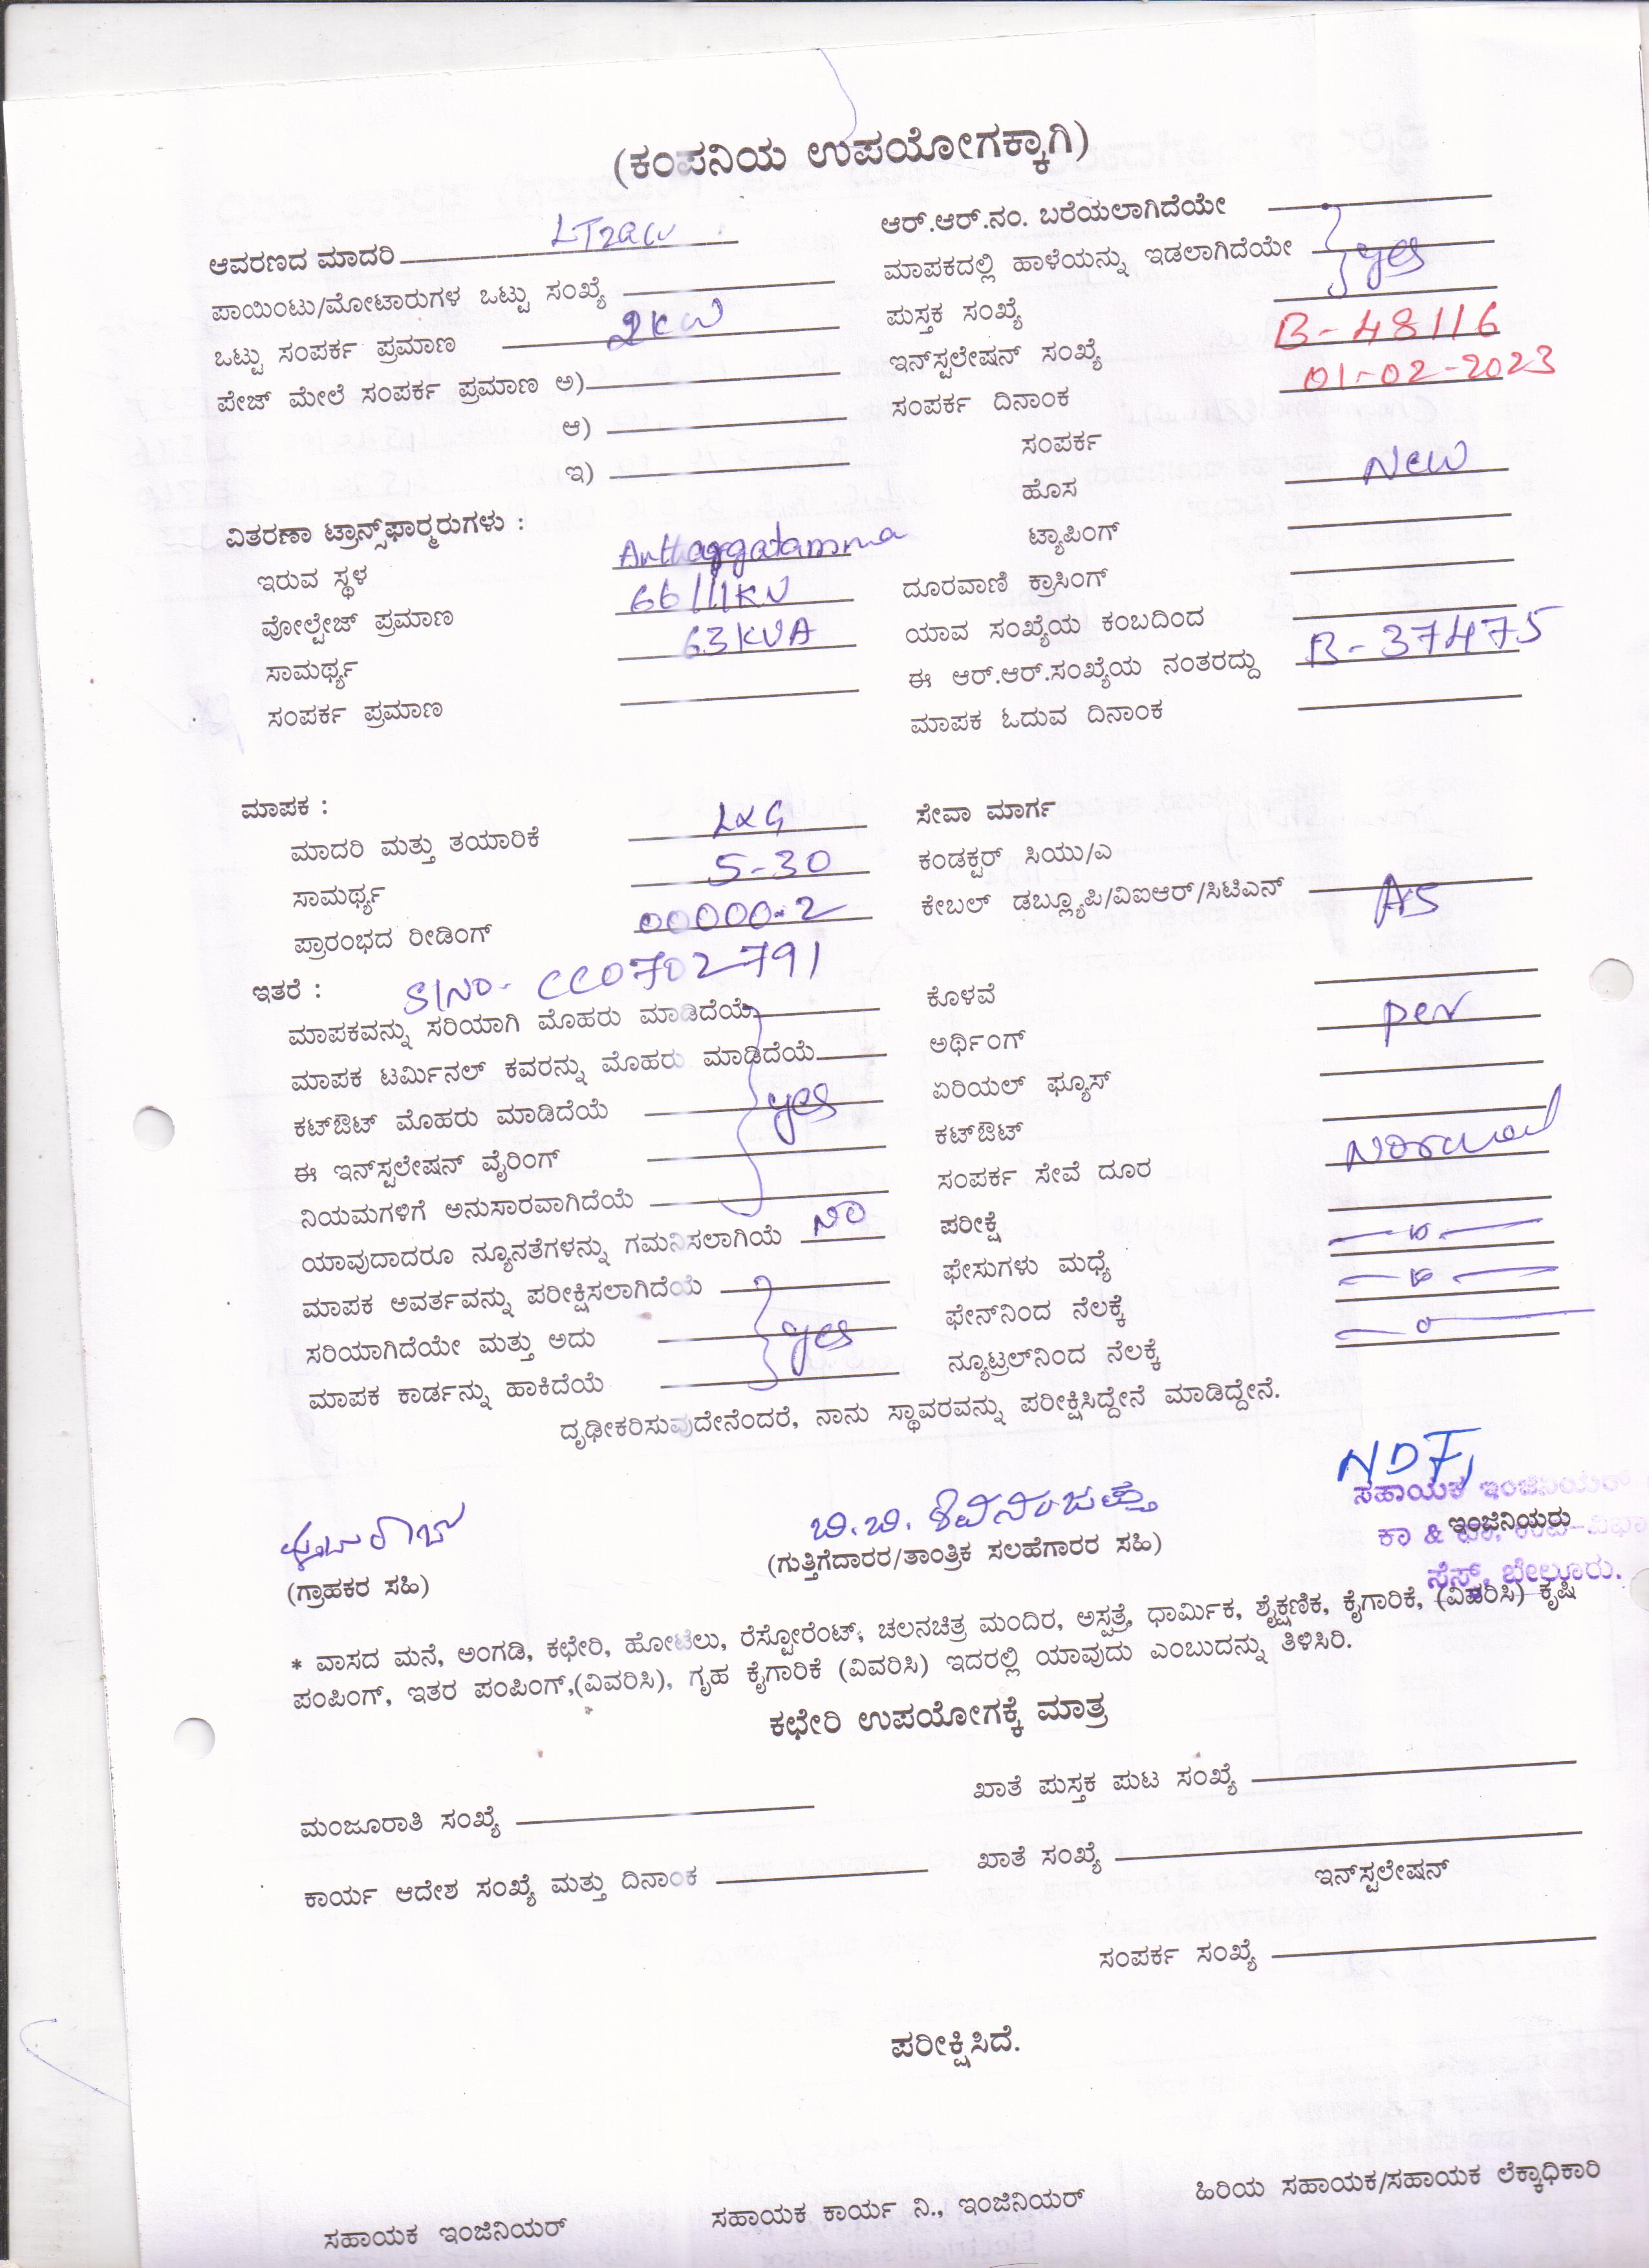 (ಕಂಪನಿಯ ಉಪಯೋಗಕ್ಕಾಗಿ)
ಆವರಣದ ಮಾದರಿ
ಪಾಯಿಂಟು/ಮೋಟಾರುಗಳ ಒಟ್ಟು ಸಂಖ್ಯೆ
ಒಟ್ಟು ಸಂಪರ್ಕ ಪ್ರಮಾಣ 2KW
ಪೇಜ್ ಮೇಲೆ ಸಂಪರ್ಕ ಪ್ರಮಾಣ ಅ)
ಆ)
ಇ)
ವಿತರಣಾ ಟ್ರಾನ್ಸ್‌ಫಾರ್‍ಮರುಗಳು :
ಇರುವ ಸ್ಥಳ
ವೋಲ್ಟೇಜ್ ಪ್ರಮಾಣ 66/11KV
ಸಾಮರ್ಥ್ಯ 63KVA
ಸಂಪರ್ಕ ಪ್ರಮಾಣ
ಆರ್.ಆರ್.ನಂ. ಬರೆಯಲಾಗಿದೆಯೇ
ಮಾಪಕದಲ್ಲಿ ಹಾಳೆಯನ್ನು ಇಡಲಾಗಿದೆಯೇ yes
ಪುಸ್ತಕ ಸಂಖ್ಯೆ
ಇನ್‌ಸ್ಟಲೇಷನ್ ಸಂಖ್ಯೆ B-48116
ಸಂಪರ್ಕ ದಿನಾಂಕ 01-02-2023
ಸಂಪರ್ಕ
ಹೊಸ New
ಟ್ಯಾಪಿಂಗ್
ದೂರವಾಣಿ ಕ್ರಾಸಿಂಗ್
ಯಾವ ಸಂಖ್ಯೆಯ ಕಂಬದಿಂದ
ಈ ಆರ್.ಆರ್.ಸಂಖ್ಯೆಯ ನಂತರದ್ದು B-37475
ಮಾಪಕ ಓದುವ ದಿನಾಂಕ
ಮಾಪಕ :
ಮಾದರಿ ಮತ್ತು ತಯಾರಿಕೆ L&G
ಸಾಮರ್ಥ್ಯ 5-30
ಪ್ರಾರಂಭದ ರೀಡಿಂಗ್ 00000.2
ಇತರೆ : Sl No- CC0702791
ಮಾಪಕವನ್ನು ಸರಿಯಾಗಿ ಮೊಹರು ಮಾಡಿದೆಯೆ
ಮಾಪಕ ಟರ್ಮಿನಲ್ ಕವರನ್ನು ಮೊಹರು ಮಾಡಿದೆಯೆ
ಕಟ್‌ಔಟ್ ಮೊಹರು ಮಾಡಿದೆಯೆ yes
ಈ ಇನ್‌ಸ್ಟಲೇಷನ್ ವೈರಿಂಗ್
ನಿಯಮಗಳಿಗೆ ಅನುಸಾರವಾಗಿದೆಯೆ
ಯಾವುದಾದರೂ ನ್ಯೂನತೆಗಳನ್ನು ಗಮನಿಸಲಾಗಿಯೆ NO
ಮಾಪಕ ಅವರ್ತವನ್ನು ಪರೀಕ್ಷಿಸಲಾಗಿದೆಯೆ
ಸರಿಯಾಗಿದೆಯೇ ಮತ್ತು ಅದು yes
ಮಾಪಕ ಕಾರ್ಡನ್ನು ಹಾಕಿದೆಯೆ
ಸೇವಾ ಮಾರ್ಗ
ಕಂಡಕ್ಟರ್ ಸಿಯು/ಎ
ಕೇಬಲ್ ಡಬ್ಲ್ಯೂಪಿ/ವಿಐಆರ್/ಸಿಟಿಎನ್ AS
ಕೊಳವೆ
ಅರ್ಥಿಂಗ್ per
ಏರಿಯಲ್ ಫ್ಯೂಸ್
ಕಟ್‌ಔಟ್
ಸಂಪರ್ಕ ಸೇವೆ ದೂರ
ಪರೀಕ್ಷೆ
ಫೇಸುಗಳು ಮಧ್ಯೆ
ಫೇನ್‌ನಿಂದ ನೆಲಕ್ಕೆ
ನ್ಯೂಟ್ರಲ್‌ನಿಂದ ನೆಲಕ್ಕೆ
ದೃಢೀಕರಿಸುವುದೇನೆಂದರೆ, ನಾನು ಸ್ಥಾವರವನ್ನು ಪರೀಕ್ಷಿಸಿದ್ದೇನೆ ಮಾಡಿದ್ದೇನೆ.
ಸಹಾಯಕ ಇಂಜಿನಿಯರ್
ಇಂಜಿನಿಯರು
ಸೆಸ್ಕ್, ಬೇಲೂರು.
(ಗ್ರಾಹಕರ ಸಹಿ)
(ಗುತ್ತಿಗೆದಾರರ/ತಾಂತ್ರಿಕ ಸಲಹೆಗಾರರ ಸಹಿ)
* ವಾಸದ ಮನೆ, ಅಂಗಡಿ, ಕಛೇರಿ, ಹೋಟೆಲು, ರೆಸ್ಟೋರೆಂಟ್, ಚಲನಚಿತ್ರ ಮಂದಿರ, ಅಸ್ಪತ್ರೆ, ಧಾರ್ಮಿಕ, ಶೈಕ್ಷಣಿಕ, ಕೈಗಾರಿಕೆ, (ವಿವರಿಸಿ) ಕೃಷಿ
ಪಂಪಿಂಗ್, ಇತರ ಪಂಪಿಂಗ್,(ವಿವರಿಸಿ), ಗೃಹ ಕೈಗಾರಿಕೆ (ವಿವರಿಸಿ) ಇದರಲ್ಲಿ ಯಾವುದು ಎಂಬುದನ್ನು ತಿಳಿಸಿರಿ.
ಕಛೇರಿ ಉಪಯೋಗಕ್ಕೆ ಮಾತ್ರ
ಮಂಜೂರಾತಿ ಸಂಖ್ಯೆ
ಖಾತೆ ಪುಸ್ತಕ ಪುಟ ಸಂಖ್ಯೆ
ಕಾರ್ಯ ಆದೇಶ ಸಂಖ್ಯೆ ಮತ್ತು ದಿನಾಂಕ
ಖಾತೆ ಸಂಖ್ಯೆ
ಇನ್‌ಸ್ಟಲೇಷನ್
ಸಂಪರ್ಕ ಸಂಖ್ಯೆ
ಪರೀಕ್ಷಿಸಿದೆ.
ಸಹಾಯಕ ಇಂಜಿನಿಯರ್
ಸಹಾಯಕ ಕಾರ್ಯ ನಿ., ಇಂಜಿನಿಯರ್
ಹಿರಿಯ ಸಹಾಯಕ/ಸಹಾಯಕ ಲೆಕ್ಕಾಧಿಕಾರಿ